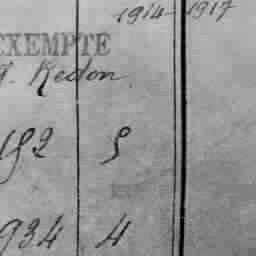 1914-1917
EXEMPTE
Redon
192 5
934 4